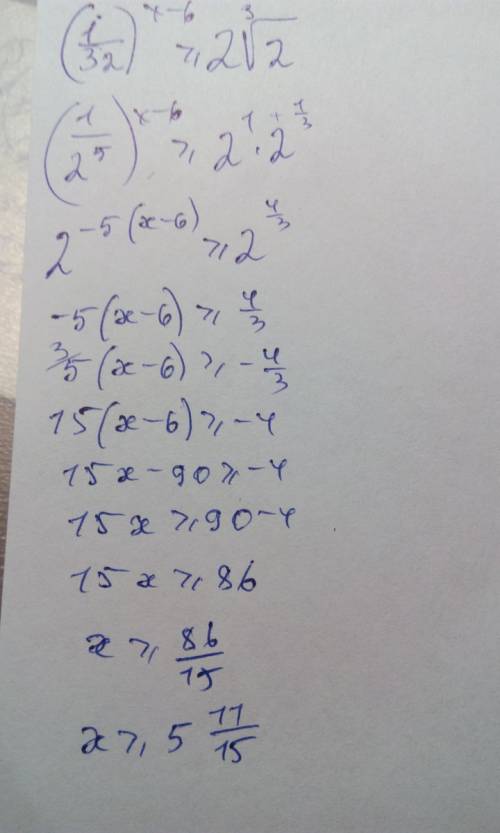 (1/32)^(x-6) ⩾ 2∛2
(1/2^5)^(x-6) ⩾ 2^1 · 2^(1/3)
2^(-5(x-6)) ⩾ 2^(4/3)
-5(x-6) ⩾ 4/3
3/ 5(x-6) ⩾ -4/3
15(x-6) ⩾ -4
15x - 90 ⩾ -4
15x ⩾ 90-4
15x ⩾ 86
x ⩾ 86/15
x ⩾ 5 11/15